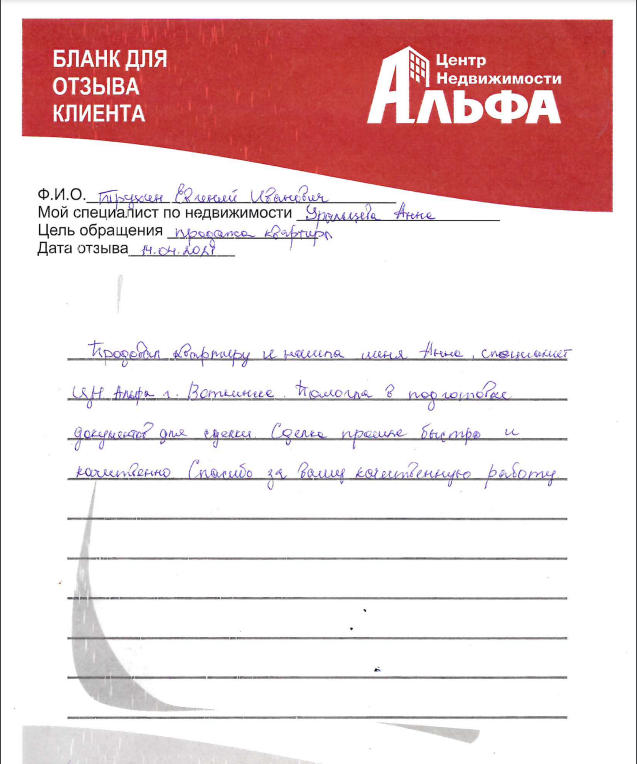 БЛАНК ДЛЯ
ОТЗЫВА
КЛИЕНТА
Центр
Недвижимости
АЛЬФА
Ф.И.О. Трухин Евгений Иванович
Мой специалист по недвижимости Уральцева Анна
Цель обращения продажа квартиры
Дата отзыва 14.04.2021
Продавал квартиру и нашла меня Анна, специалист
ЦН Альфа г. Воткинска. Помогла в подготовке
документов для сделки. Сделка прошла быстро и
качественно Спасибо за вашу качественную работу